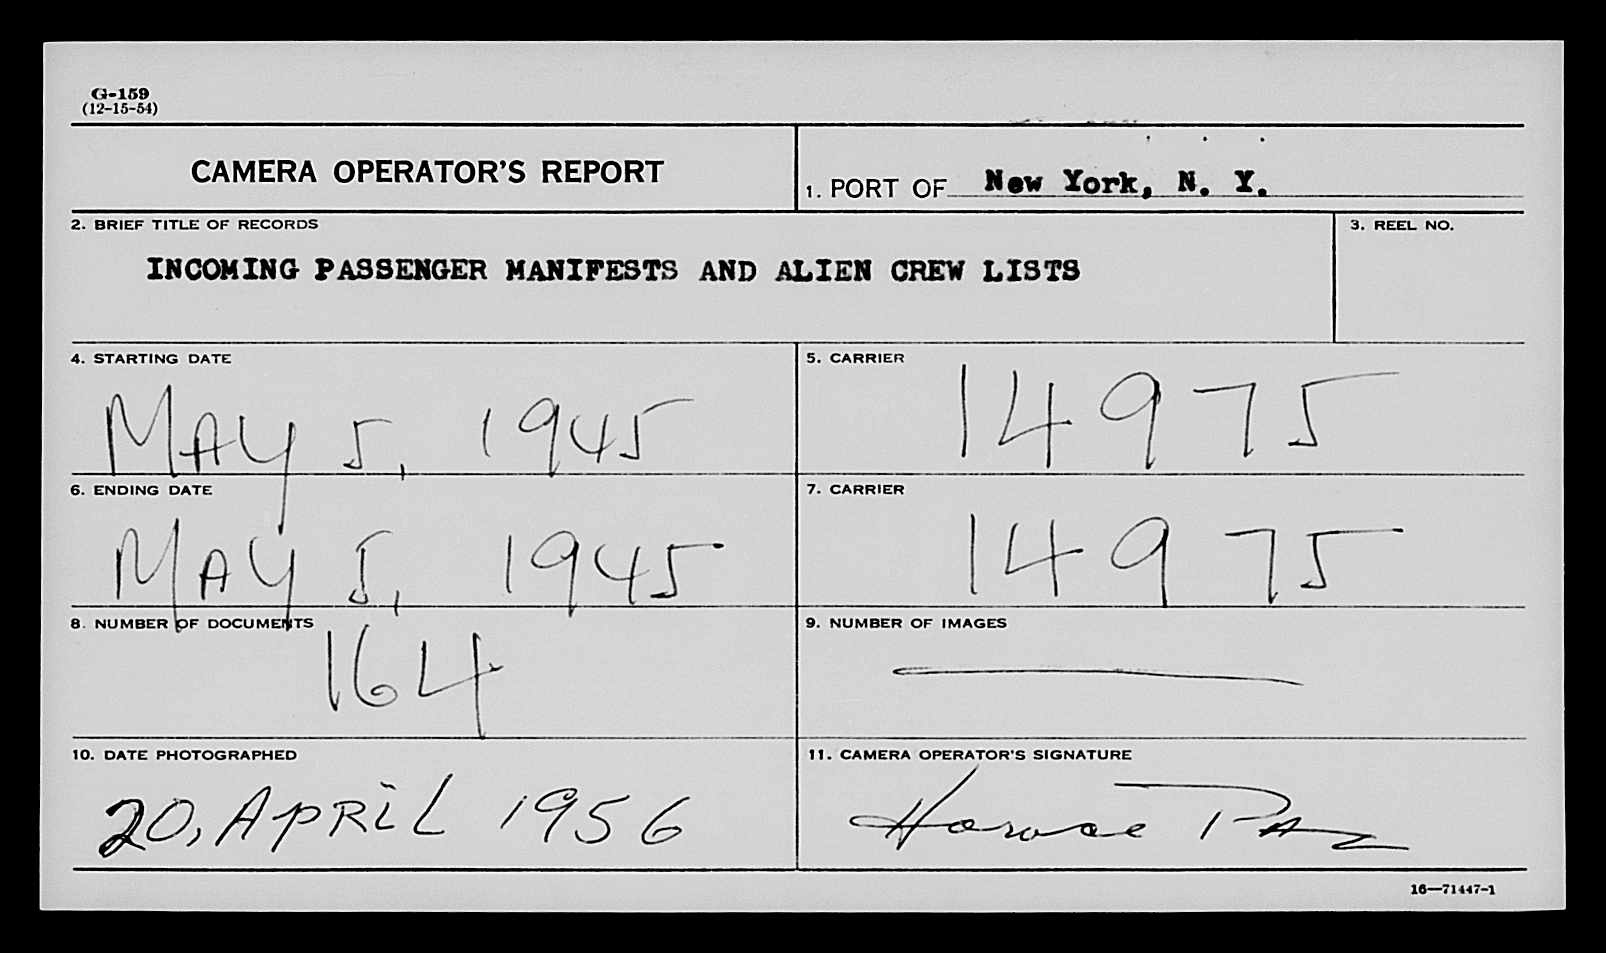 G-159
(12-15-54)
CAMERA OPERATOR'S REPORT
1. PORT OF New York, N. Y.
2. BRIEF TITLE OF RECORDS
3. REEL NO.
INCOMING PASSENGER MANIFESTS AND ALIEN CREW LISTS
4. STARTING DATE
5. CARRIER
MAY 5, 1945
14975
6. ENDING DATE
7. CARRIER
MAY 5, 1945
14975
8. NUMBER OF DOCUMENTS
9. NUMBER OF IMAGES
164
10. DATE PHOTOGRAPHED
11. CAMERA OPERATOR'S SIGNATURE
20, APRIL 1956
Horace Paz
16—71447-1